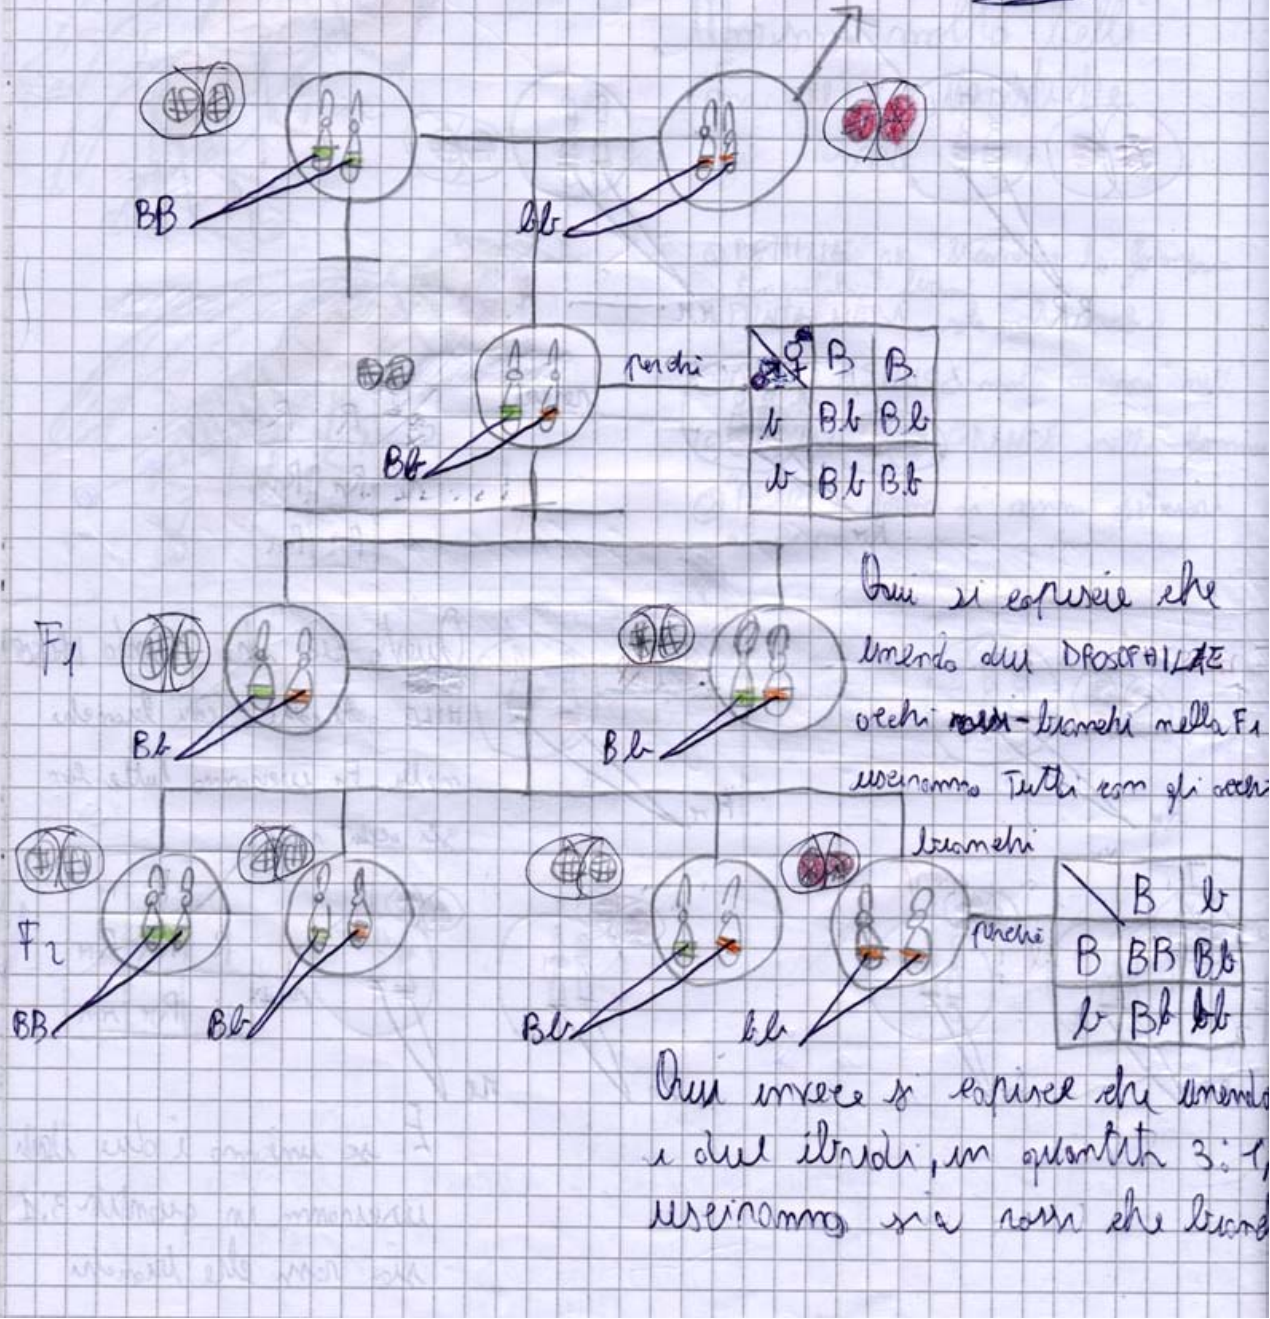 BB
bb
perché
B B
b Bb Bb
b Bb Bb
Bb
Qui si capiscie che
unendo due DROSOPHILAE
occhi rossi-bianchi nella F1
usciranno Tutti con gli occhi
bianchi
F1
Bb
Bb
F2
BB
Bb
Bb
bb
perché
B b
B BB Bb
b Bb bb
Qui invece si capisce che unendo
i due ibridi, in quantità 3:1,
usciranno sia rossi che